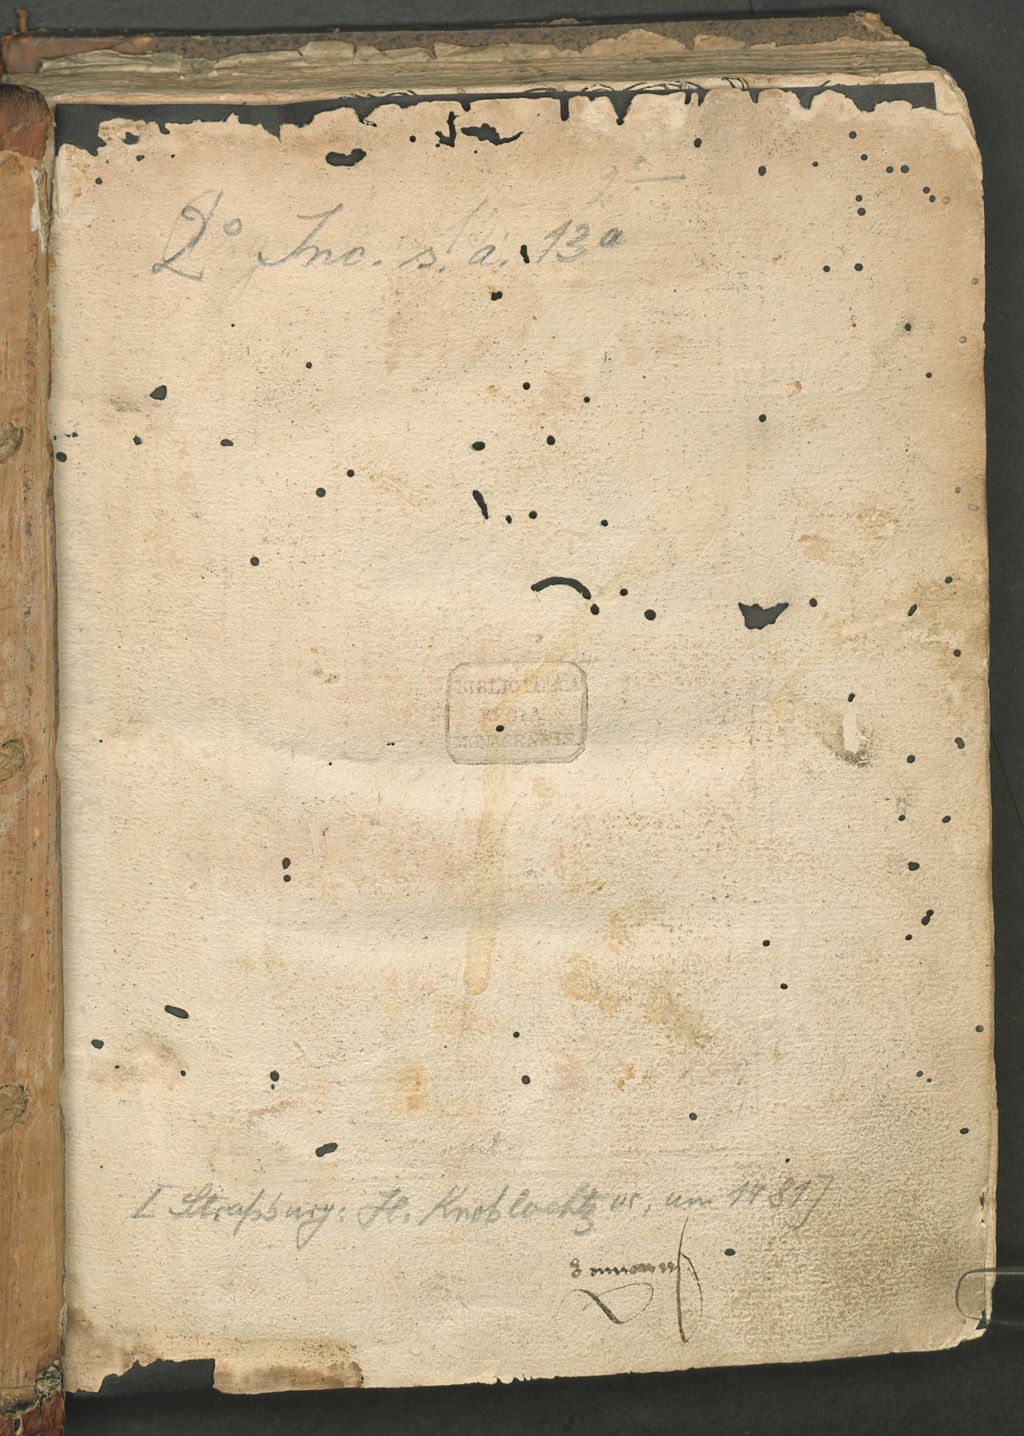 2°
2° Inc. s. a. 13a
BIBLIOTHECA
REGIA
MONACENSIS
[Straßburg: H. Knoblochtzer, um 1481]